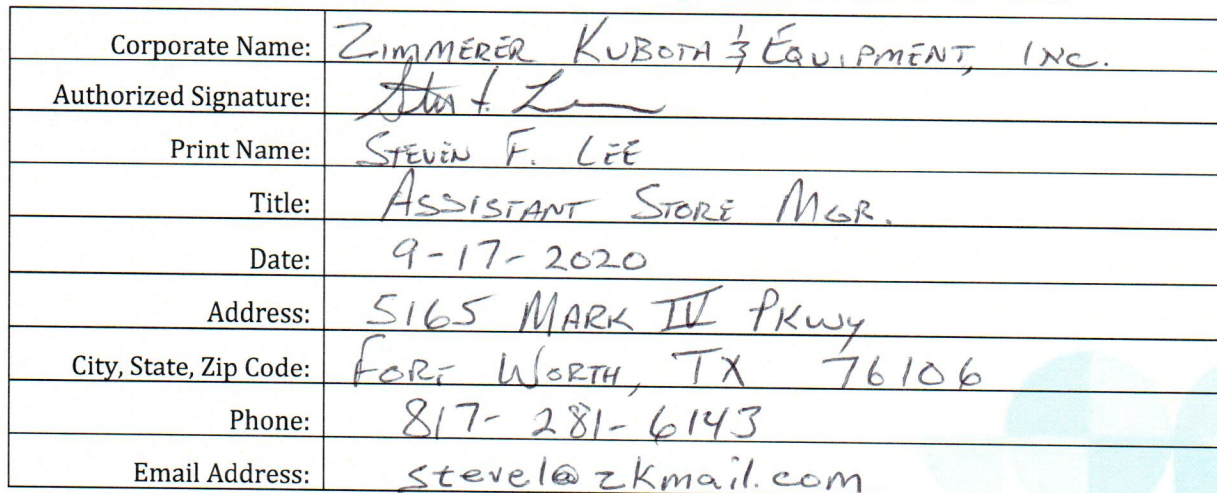 Corporate Name: ZIMMERER KUBOTA & EQUIPMENT, INC.
Authorized Signature:
Print Name: STEVEN F. LEE
Title: ASSISTANT STORE MGR.
Date: 9-17-2020
Address: 5165 MARK IV PKWY
City, State, Zip Code: FORT WORTH, TX 76106
Phone: 817-281-6143
Email Address: stevel@zkmail.com